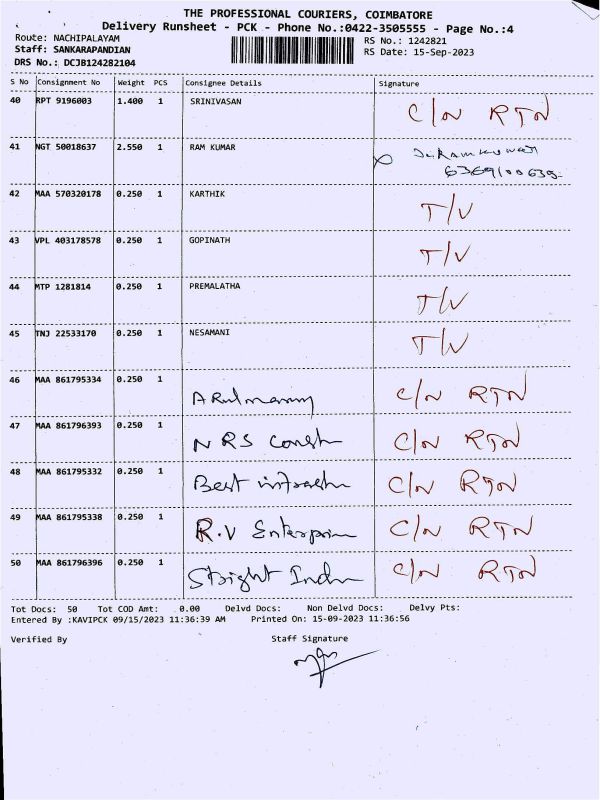 THE PROFESSIONAL COURIERS, COIMBATORE
Delivery Runsheet - PCK - Phone No.:0422-3505555 - Page No.:4
Route: NACHIPALAYAM RS No.: 1242821
Staff: SANKARAPANDIAN RS Date: 15-Sep-2023
DRS No.: DCJB124282104
S No Consignment No Weight PCS Consignee Details Signature
40 RPT 9196003 1.400 1 SRINIVASAN C/N RTN
41 NGT 50018637 2.550 1 RAM KUMAR
42 MAA 570320178 0.250 1 KARTHIK T/V
43 VPL 403178578 0.250 1 GOPINATH T/V
44 MTP 1281814 0.250 1 PREMALATHA T/V
45 TNJ 22533170 0.250 1 NESAMANI T/V
46 MAA 861795334 0.250 1 C/N RTN
47 MAA 861796393 0.250 1 NRS C/N RTN
48 MAA 861795332 0.250 1 Best C/N RTN
49 MAA 861795338 0.250 1 R.V C/N RTN
50 MAA 861796396 0.250 1 C/N RTN
Tot Docs: 50 Tot COD Amt: 0.00 Delvd Docs: Non Delvd Docs: Delvy Pts:
Entered By :KAVIPCK 09/15/2023 11:36:39 AM Printed On: 15-09-2023 11:36:56
Verified By Staff Signature